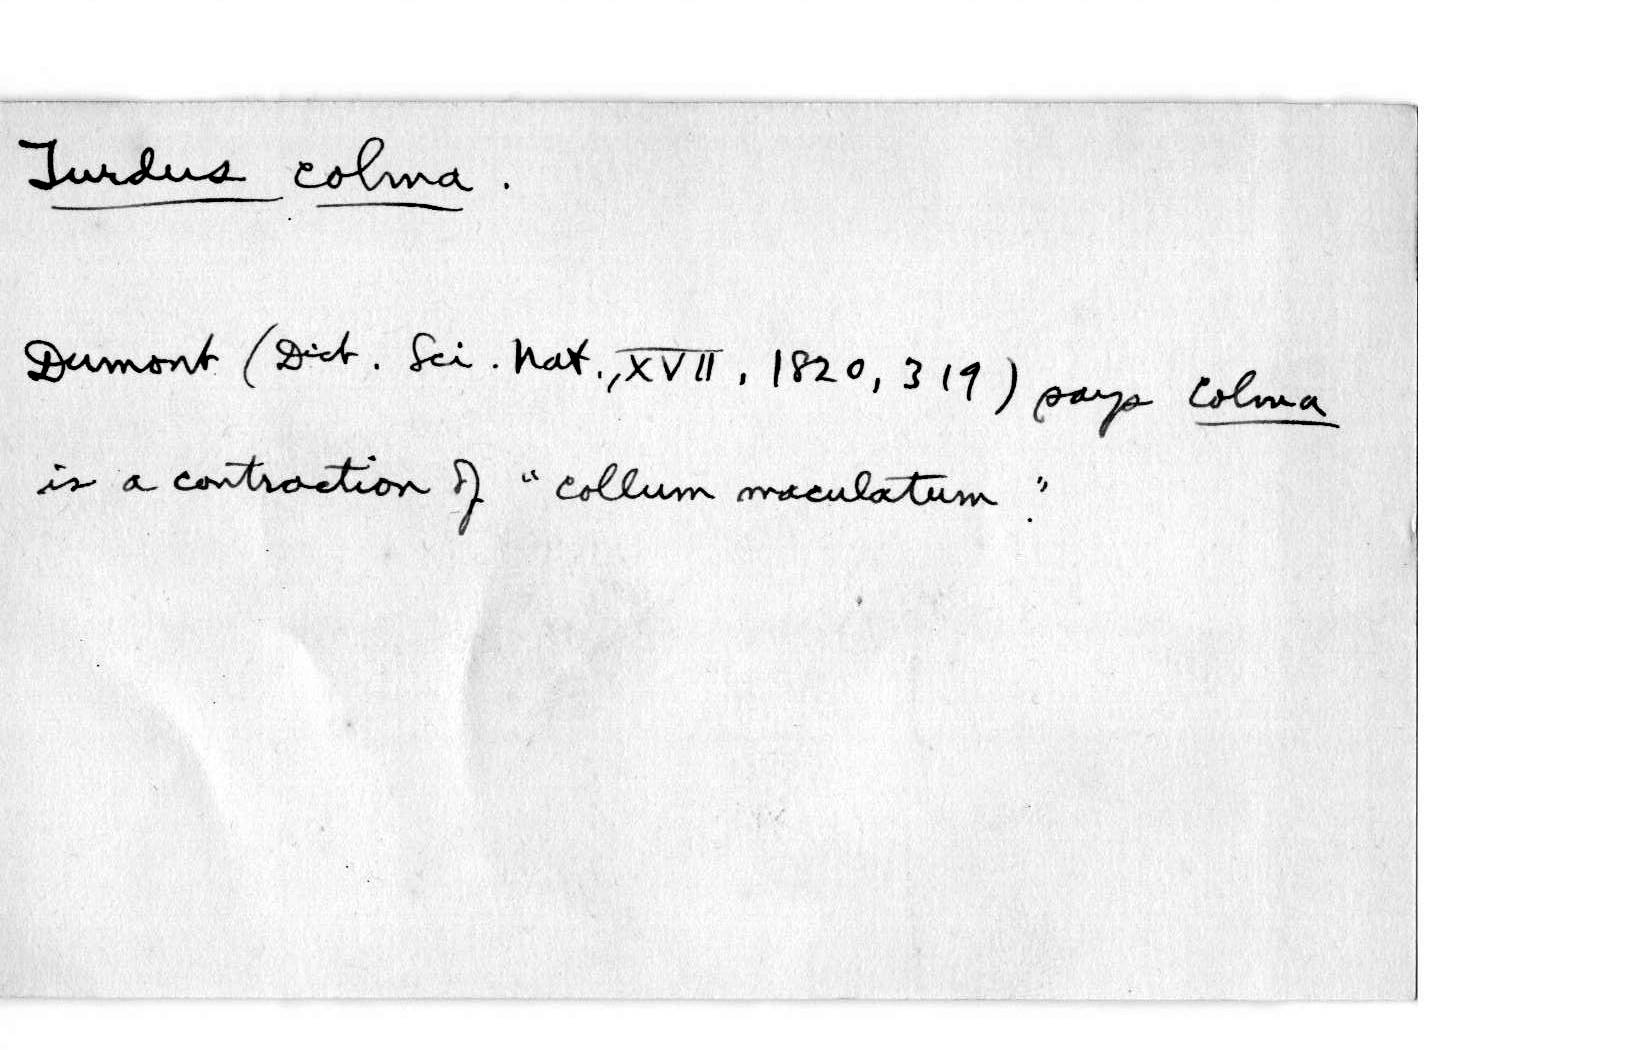 Turdus colma.
Dumont (Dict. Sci. Nat., XVII, 1820, 319) says Colma
is a contraction of "collum maculatum".